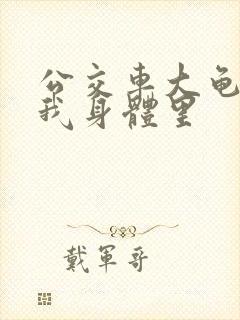 公交車大龟
我身體里
戴軍哥